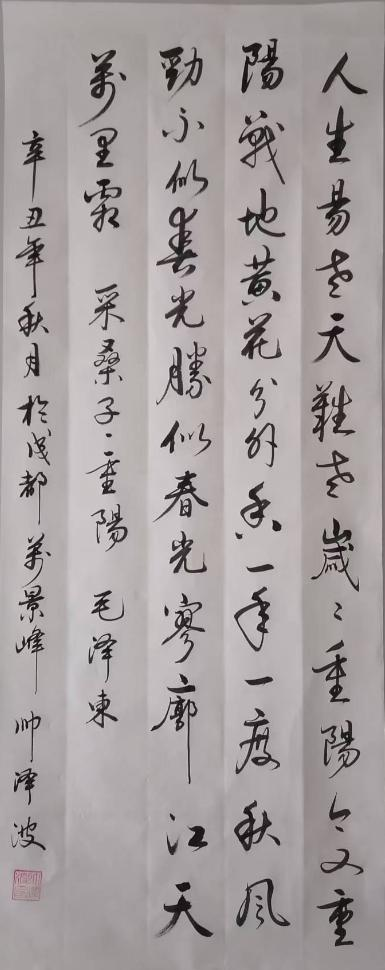 人生易老天難老歲〻重陽今又重
陽戰地黃花分外香一年一度秋風
勁不似春光勝似春光寥廓江天
萬里霜 采桑子·重陽 毛澤東
辛丑年秋月於成都萬景峰 帥澤波